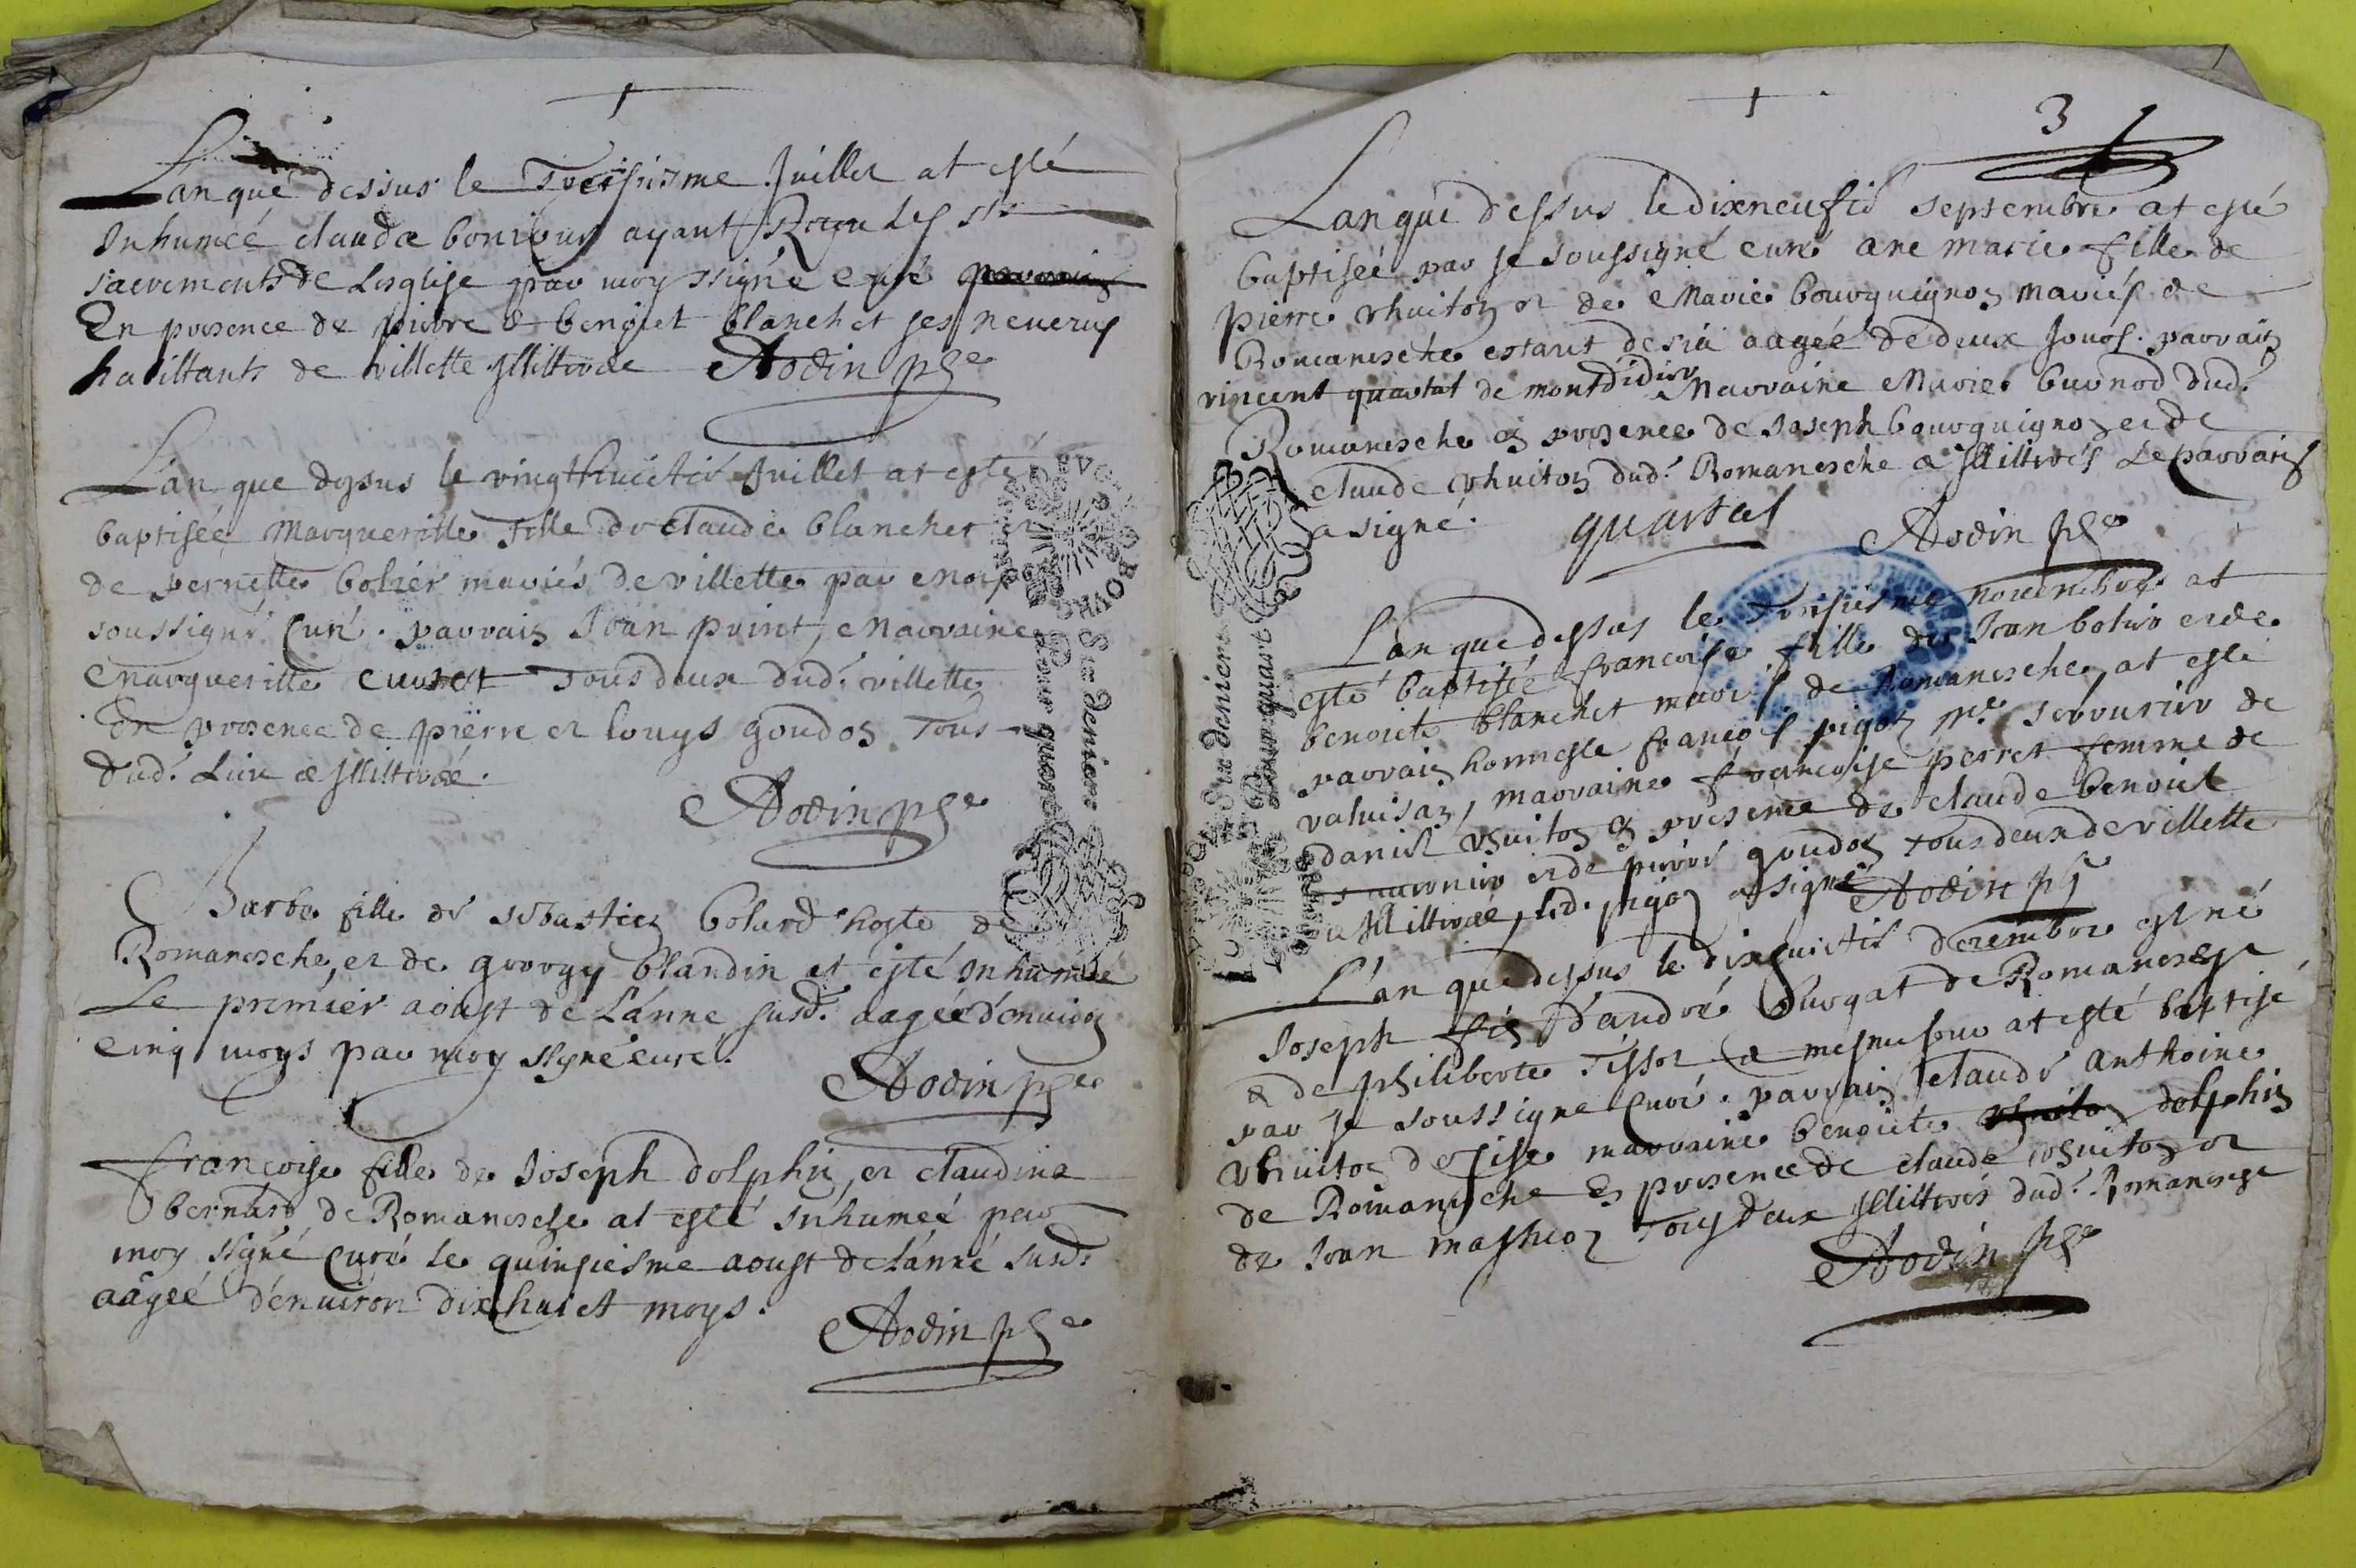 Lan que dessus le Treisiesme Juillet at esté
Inhumeé claudα boniour ayant Receu les sts
sacrements de Lesglise par moy ssigné curé
En presence de pierre & benoiet blanchet ses neueus
habittants de villette Illittrée Aodin pbre
Lan que dessus le vingthuictié Juillet at esté
baptiseé Margueritte fille de claude blanchet et
de pernette bolier mariés de villette par moy
soussigné Curé. parrain Jean print, Marraine
Margueritte cuuset tous deux dud. villette
En presence de pierre et louys goudon Tous
dud. Lieu & Illittreé.
Aodin pbre
Barbe fille de sebastien bolard hoste de
Romanesche, et de georgy blandin at esté Inhumeé
Le premier aoust de L'anne susd. aageé d'enuiron
cinq moys par moy ssigné curé.
Aodin pbre
francoise fille de Joseph dolphin, et claudine
bernard de Romanesche at esté Inhumeé par
moy ssigné Curé le quinsiesme aoust de L'anné susd.
aageé d'enuiron dix huict moys.
Aodin pbre
3
Lan que dessus le dixneufié septembre at esté
baptiseé par je soussigné curé ane marie fille de
pierre vhuiton et de Marie bourguignon mariés de
Romanesche estant desià aageé de deux Jours. parrain
vincent quartal de montdidier Marraine Marie burnod dud.
Romanesche en presence de Joseph bourguignon et de
claude vhuiton dud. Romanesche & Illittrés Le parrain
a signé. quartal
Aodin pbre
Lan que dessus le Treisiesme nouembre at
esté baptiseé francoise fille de Jean bolier et de
benoiete blanchet mariés de Romanesche, at esté
parrain honneste francois pigon me serrurier de
valuisan, marraine francoise perret femme de
daniel vhuiton en presence de claude benoiet
et de pierre goudon tous deux de villette
& Illittreé, led. pigon a signé Aodin pbre
L'an que dessus le dixhuictié decembre est né
Joseph fis d'andré burgat de Romanesche
& de philiberte Tissot & mesme jour at esté baptisé
par je soussigne Curé. parrain claude anthoine
vhuiton marraine benoiete dolphin
de Romanesche en presence de claude vhuiton et
de Jean mashion Tous deux Illittrés dud. Romanesche
Aodin pbre
Six deniers
Pour quart
Six deniers
Pour quart